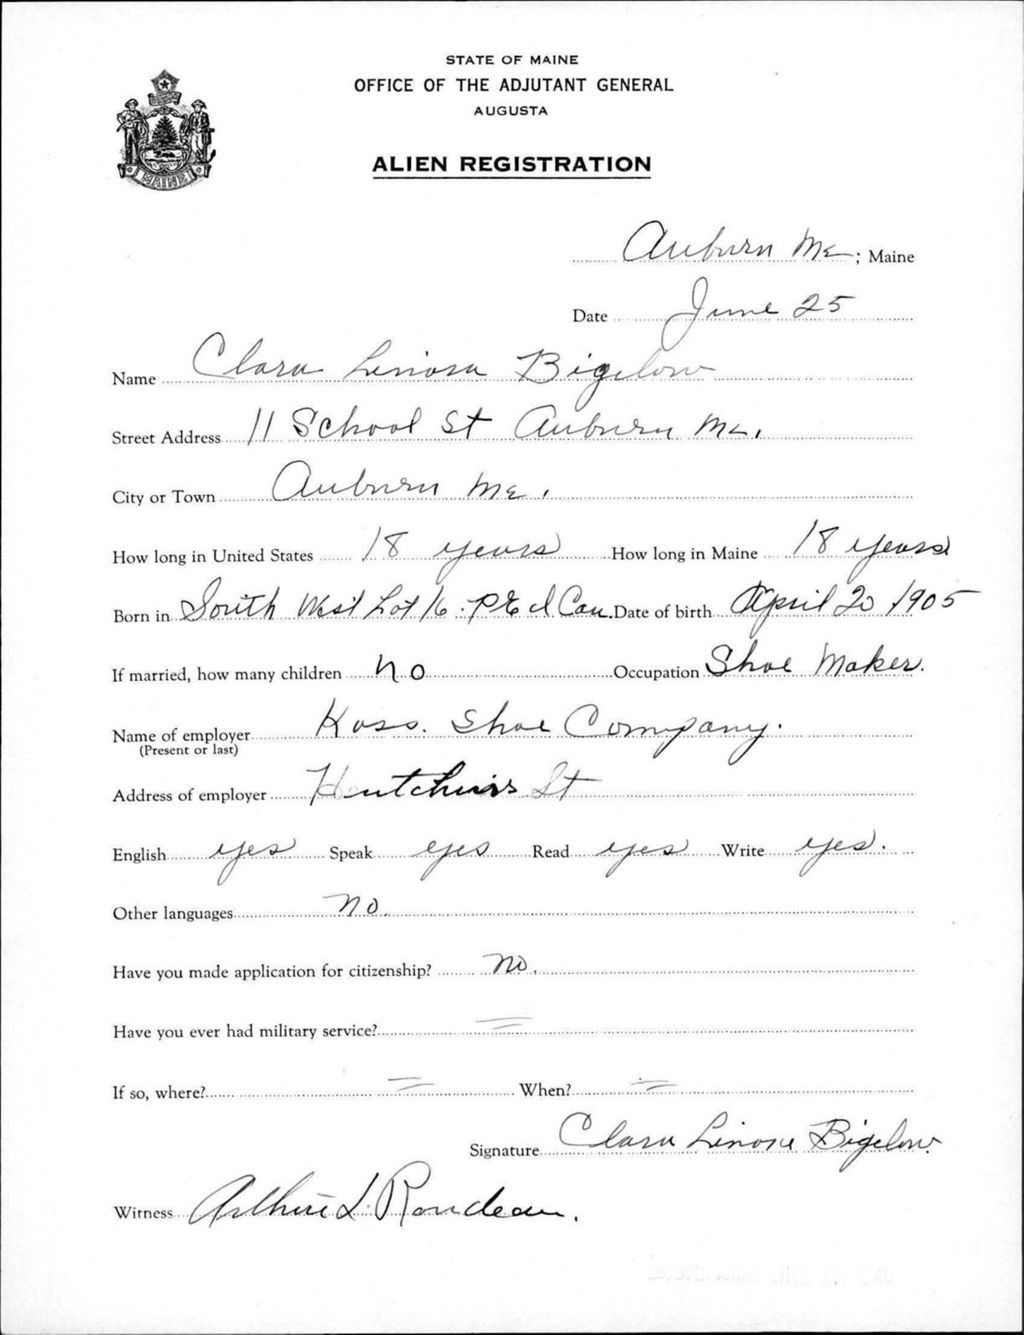 STATE OF MAINE
OFFICE OF THE ADJUTANT GENERAL
AUGUSTA
MAINE
ALIEN REGISTRATION
Auburn Me; Maine
Date June 25
Name Clara Lenora Bigelow
Street Address 11 School St Auburn Me.
City or Town Auburn Me.
How long in United States 18 years How long in Maine 18 years
Born in South West Lot 16. P E I Can. Date of birth April 20 1905
If married, how many children No Occupation Shoe Maker.
Name of employer Koss. Shoe Company.
(Present or last)
Address of employer Hutchins St
English yes Speak yes Read yes Write yes.
Other languages No.
Have you made application for citizenship? No.
Have you ever had military service? =
If so, where? = When? =
Signature Clara Lenora Bigelow.
Witness L. Rondeau.